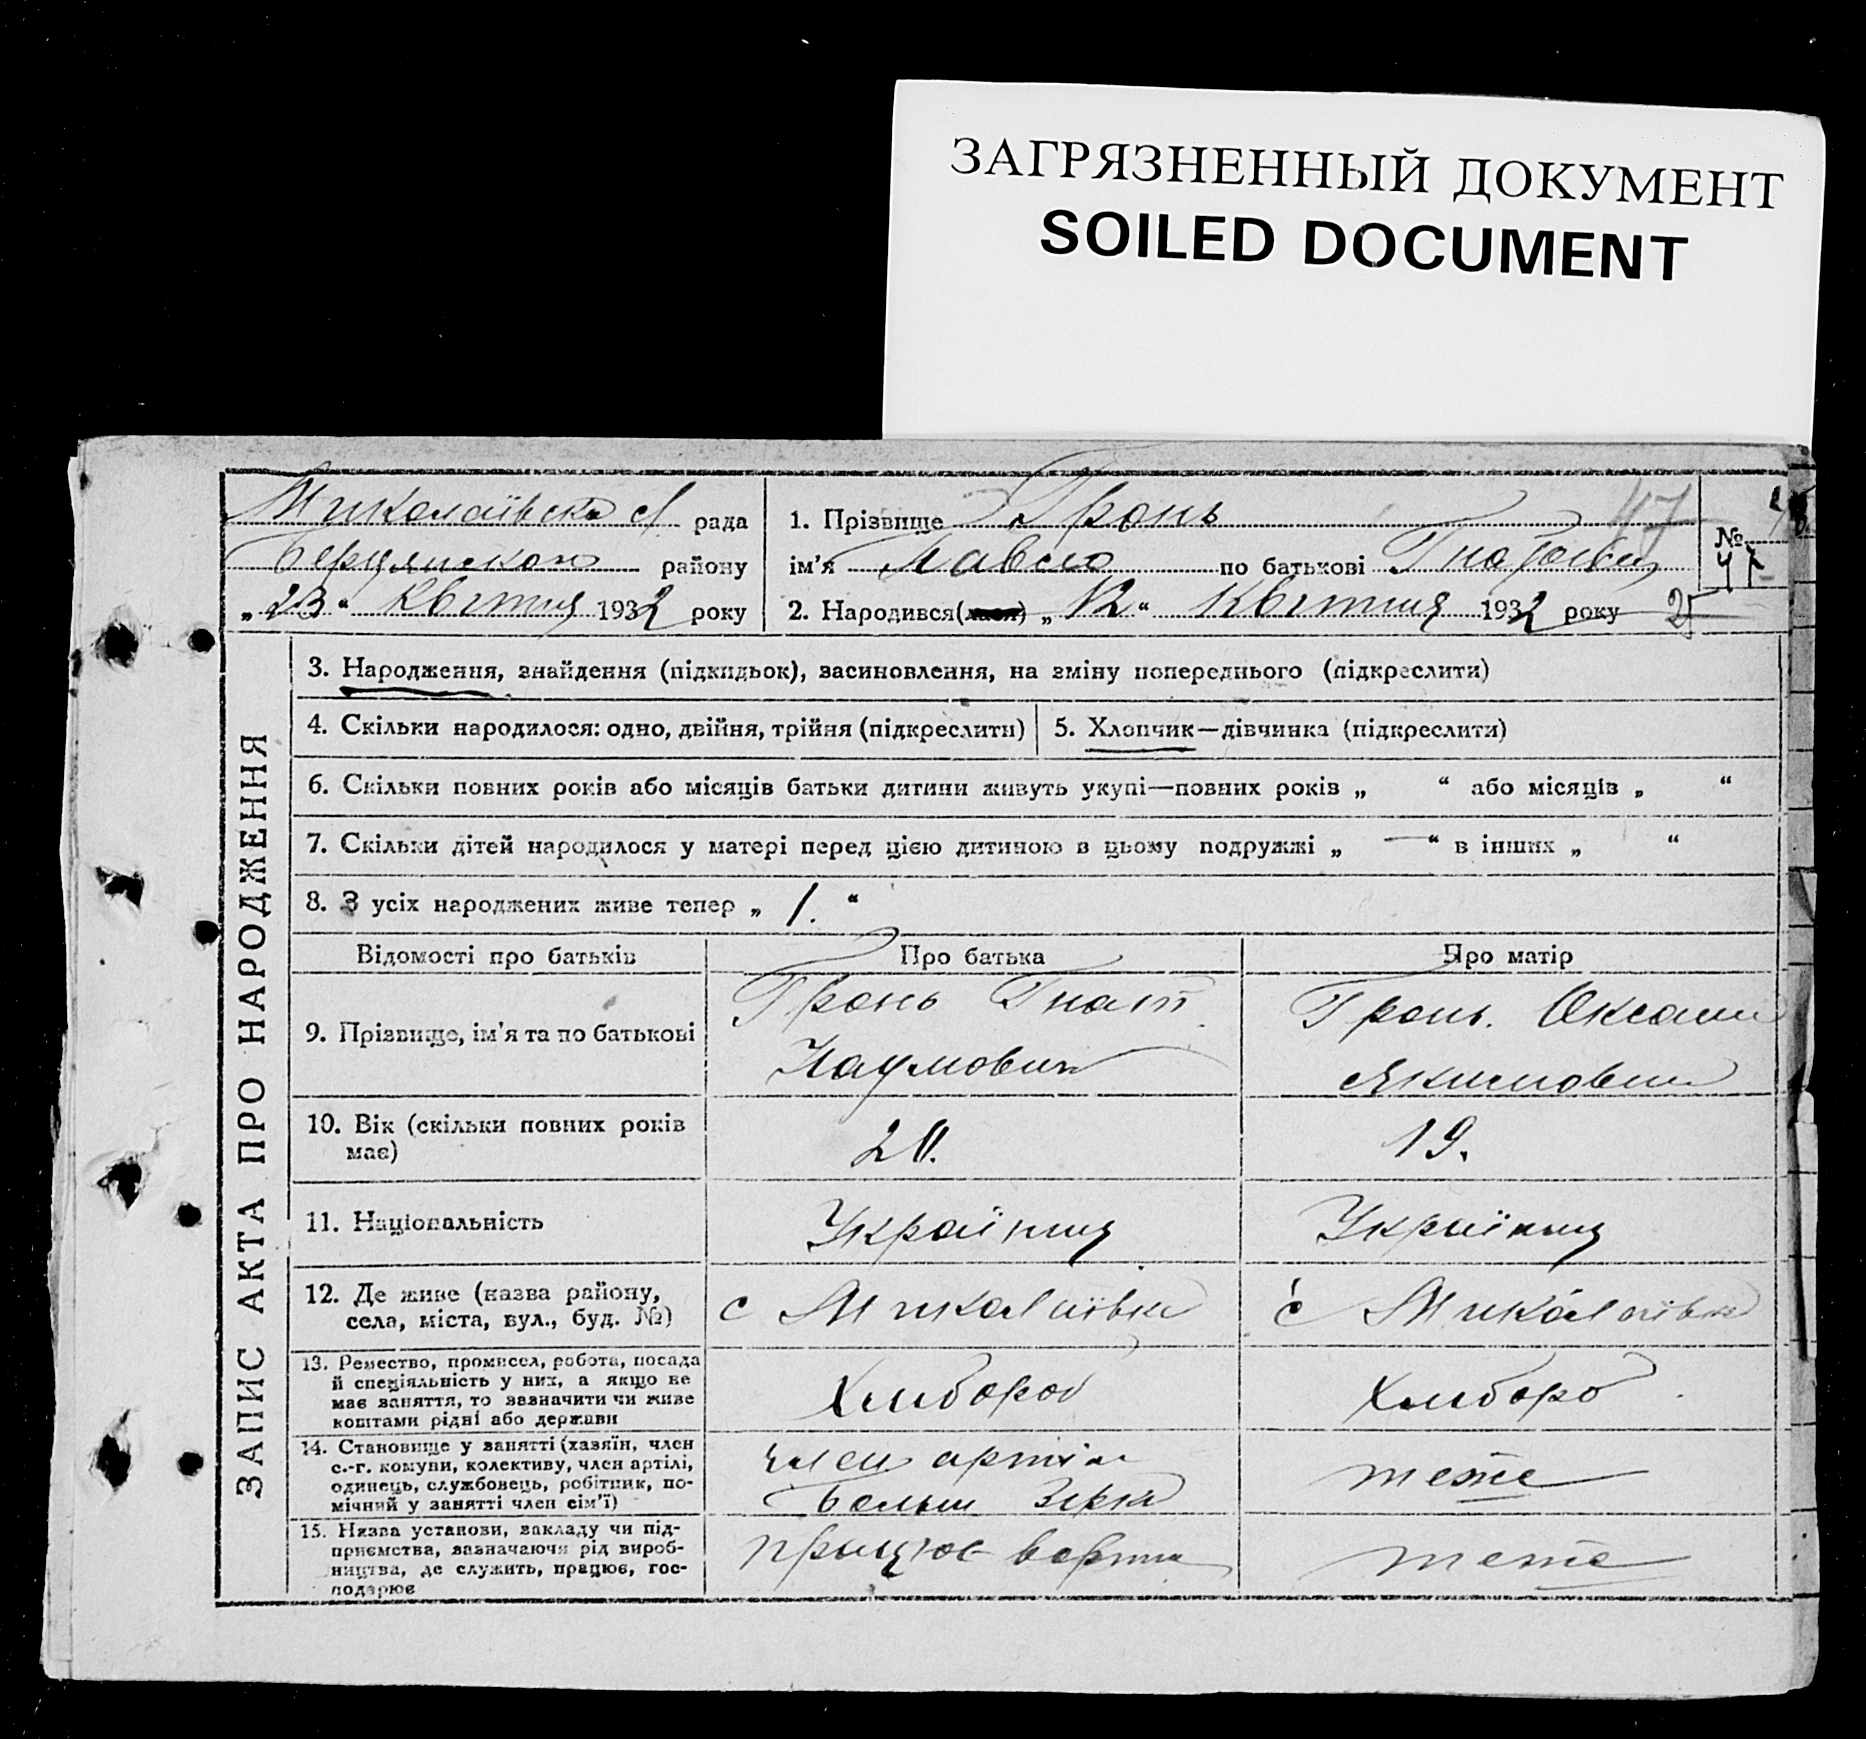 ЗАГРЯЗНЕННЫЙ ДОКУМЕНТ
SOILED DOCUMENT
Миколаївска с/ рада
Бердянского району
„ 23 “ Квітня 1932 року
1. Прізвище Гронь 47
ім'я Павло по батькові Гнатович
2. Народився(лася) „ 12 “ Квітня 1932 року 25
№ 47
ЗАПИС АКТА ПРО НАРОДЖЕННЯ
3. Народження, знайдення (підкидьок), засиновлення, на зміну попереднього (підкреслити)
4. Скільки народилося: одно, двійня, трійня (підкреслити)
5. Хлопчик—дівчинка (підкреслити)
6. Скільки повних років або місяців батьки дитини живуть укупі—повних років „ “ або місяців „ “
7. Скільки дітей народилося у матері перед цією дитиною в цьому подружжі „ — “ в інших „ “
8. З усіх народжених живе тепер „ 1. “
Відомості про батьків Про батька Про матір
9. Прізвище, ім'я та по батькові
Гронь Гнат
Наумович
Гронь. Оксана
Якимовна
10. Вік (скільки повних років
має)
20. 19.
11. Національність Україниця Україниця
12. Де живе (назва району,
села, міста, вул., буд. №)
с Миколаївка с Миколаївка
13. Ремество, промисел, робота, посада
й спеціяльність у них, а якщо не
має заняття, то зазначити чи живе
коштами рідні або держави
Хлибороб Хлиборо
14. Становище у занятті (хазяїн, член
с.-г. комуни, колективу, член артілі,
одинець, службовець, робітник, по-
мічний у занятті член сім'ї)
член артіли
Больш Зірка
теже
15. Назва установи, закладу чи під-
приємства, зазначаючи рід вироб-
ництва, де служить, працює, гос-
подарює
працює
теже